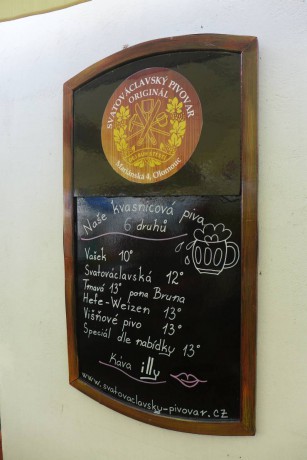 SVATOVÁCLAVSKÝ PIVOVAR
ORIGINÁL
Mariánská 4, Olomouc
Naše kvasnicová piva
6 druhů
Vašek 10°
Svatováclavská 12°
Tmavá 13° pana Bruna
Hefe-Weizen 13°
Višňové pivo 13°
Speciál dle nabídky 13°
Káva illy
www.svatovaclavsky-pivovar.cz